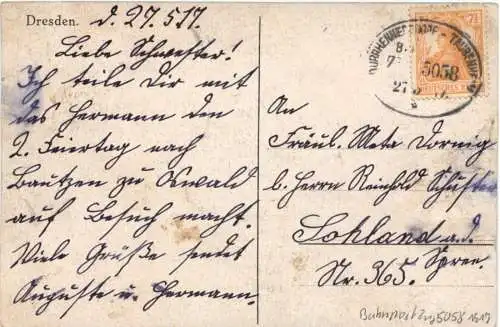 Dresden. d. 27.5.17.
Liebe Schwester!
Ich teile Dir mit
das Hermann den
2. Feiertag nach
Bautzen zu Oswald
auf Besuch macht.
Viele Grüße sendet
Auguste u. Hermann.
5058
An
Fräul. Meta Dornig
b. Herrn Reinhold Schuster
Sohland a.d.
Spree.
Nr. 365.
Bahnpost Zug 5058 1917